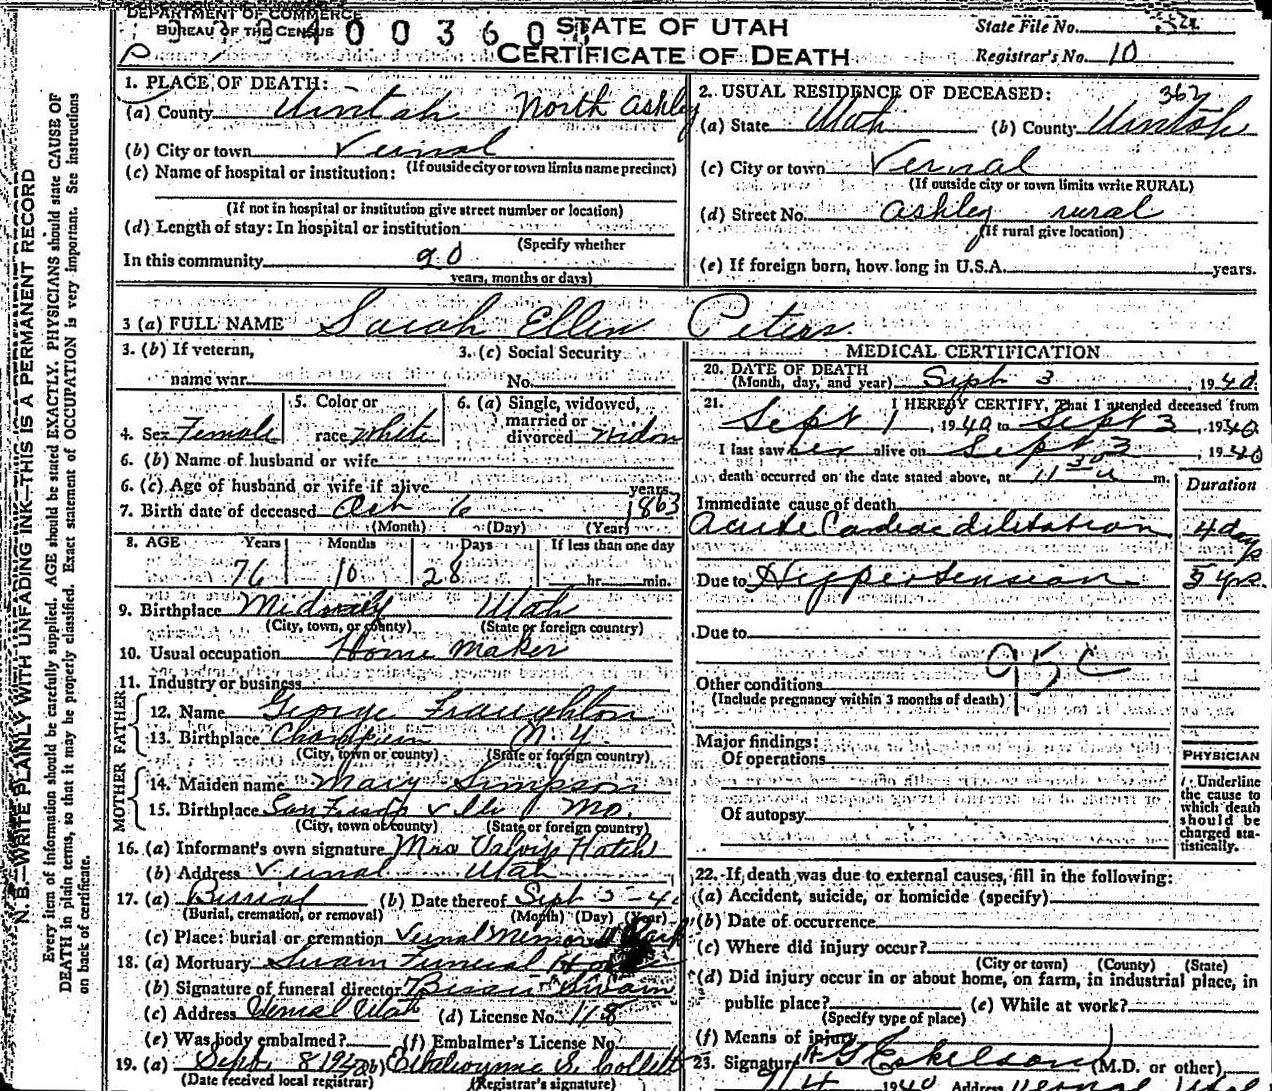 DEPARTMENT OF COMMERCE
BUREAU OF THE CENSUS
STATE OF UTAH
CERTIFICATE OF DEATH
State File No.
Registrar's No. 10
1. PLACE OF DEATH:
(a) County Uintah North Ashley
(b) City or town Vernal
(If outside city or town limits name precinct)
(c) Name of hospital or institution:
(If not in hospital or institution give street number or location)
(d) Length of stay: In hospital or institution
(Specify whether
In this community 20
years, months or days)
2. USUAL RESIDENCE OF DECEASED:
362
(a) State Utah (b) County Uintah
(c) City or town Vernal
(If outside city or town limits write RURAL)
(d) Street No. Ashley rural
(If rural give location)
(e) If foreign born, how long in U.S.A. years.
3 (a) FULL NAME Sarah Ellen Peters
3. (b) If veteran,
name war
3. (c) Social Security
No.
4. Sex Female
5. Color or
race White
6. (a) Single, widowed,
married or
divorced Widow
6. (b) Name of husband or wife
6. (c) Age of husband or wife if alive years
7. Birth date of deceased Oct 6 1863
(Month) (Day) (Year)
8. AGE Years Months Days If less than one day
76 10 28 hr. min.
9. Birthplace Midway Utah
(City, town, or county) (State or foreign country)
10. Usual occupation Home Maker
11. Industry or business
FATHER
12. Name George Fraughton
13. Birthplace N.Y.
(City, town or county) (State or foreign country)
MOTHER
14. Maiden name Mary Simpson
15. Birthplace Mo.
(City, town or county) (State or foreign country)
16. (a) Informant's own signature Mrs Hatch
(b) Address Vernal Utah
17. (a) Burial (b) Date thereof Sept 5-40
(Burial, cremation, or removal) (Month) (Day) (Year)
(c) Place: burial or cremation Vernal Memorial Park
18. (a) Mortuary Swain Funeral Home
(b) Signature of funeral director Swain
(c) Address Vernal Utah (d) License No. 118
(e) Was body embalmed? (f) Embalmer's License No.
19. (a) Sept. 8 1940 (b) S. Collett
(Date received local registrar) (Registrar's signature)
MEDICAL CERTIFICATION
20. DATE OF DEATH
(Month, day, and year) Sept 3, 1940
21. I HEREBY CERTIFY, That I attended deceased from
Sept 1, 1940 to Sept 3, 1940
I last saw her alive on Sept 3, 1940
death occurred on the date stated above, at 11 30 a m.
Duration
Immediate cause of death
Acute Cardiac dilitation 4 days
Due to Hypertension 5 yrs.
Due to
95c
Other conditions
(Include pregnancy within 3 months of death)
Major findings:
Of operations
Of autopsy
PHYSICIAN
Underline
the cause to
which death
should be
charged sta-
tistically.
22. If death was due to external causes, fill in the following:
(a) Accident, suicide, or homicide (specify)
(b) Date of occurrence
(c) Where did injury occur?
(City or town) (County) (State)
(d) Did injury occur in or about home, on farm, in industrial place, in
public place? (e) While at work?
(Specify type of place)
(f) Means of injury
23. Signature Eskelson (M.D. or other)
1940 Address Vernal
N. B.—WRITE PLAINLY WITH UNFADING INK—THIS IS A PERMANENT RECORD
Every item of information should be carefully supplied. AGE should be stated EXACTLY. PHYSICIANS should state CAUSE OF
DEATH in plain terms, so that it may be properly classified. Exact statement of OCCUPATION is very important. See instructions
on back of certificate.